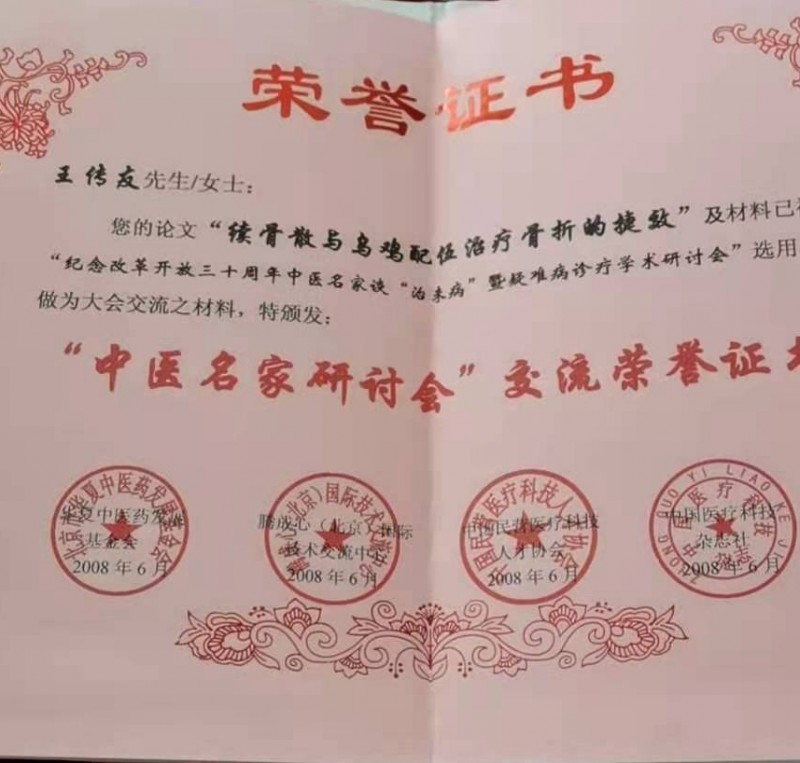 荣誉证书
王传友先生/女士：
您的论文“续骨散与乌鸡配伍治疗骨折的捷效”及材料已
“纪念改革开放三十周年中医名家谈“治未病”暨疑难病诊疗学术研讨会”选用
做为大会交流之材料，特颁发：
“中医名家研讨会”交流荣誉证
华夏中医药发展
基金会
2008年6月
鹏成心（北京）国际
技术交流中心
2008年6月
中国民营医疗科技
人才协会
2008年6月
中国医疗科技
杂志社
2008年6月